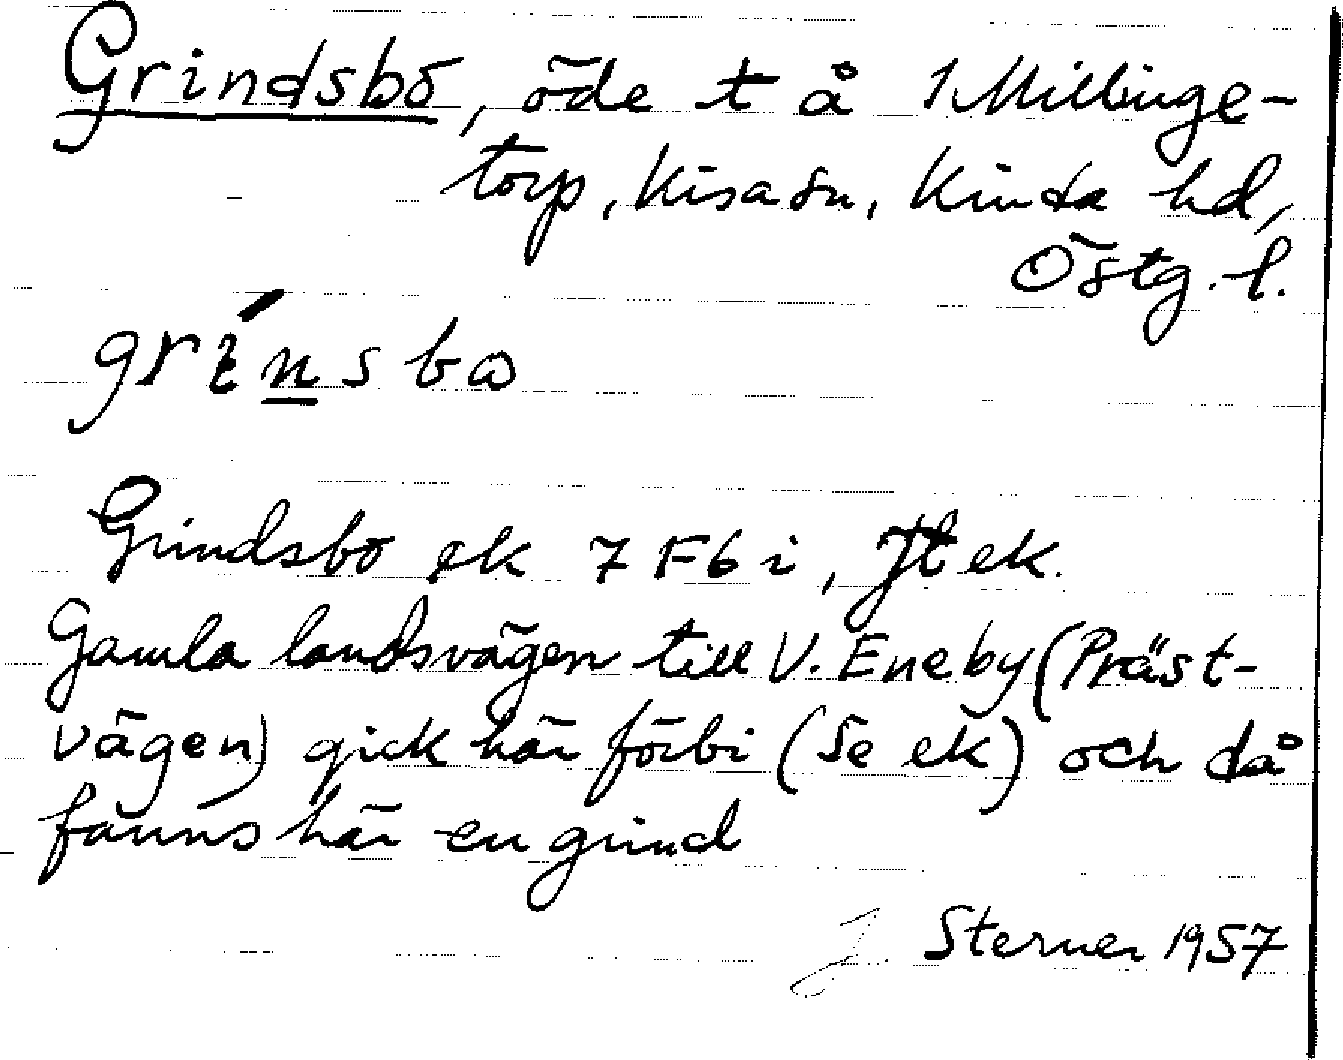 Grindsbo, öde t å 1 Millinge-
torp, Kisa sn, Kinda hd,
Östg. l.
grínsbo
Grindsbo ek 7 F6 i, Jt ek.
Gamla landsvägen till V. Eneby (Präst-
vägen) gick här förbi (Se ek) och då
fanns här en grind
J Sterner 1957